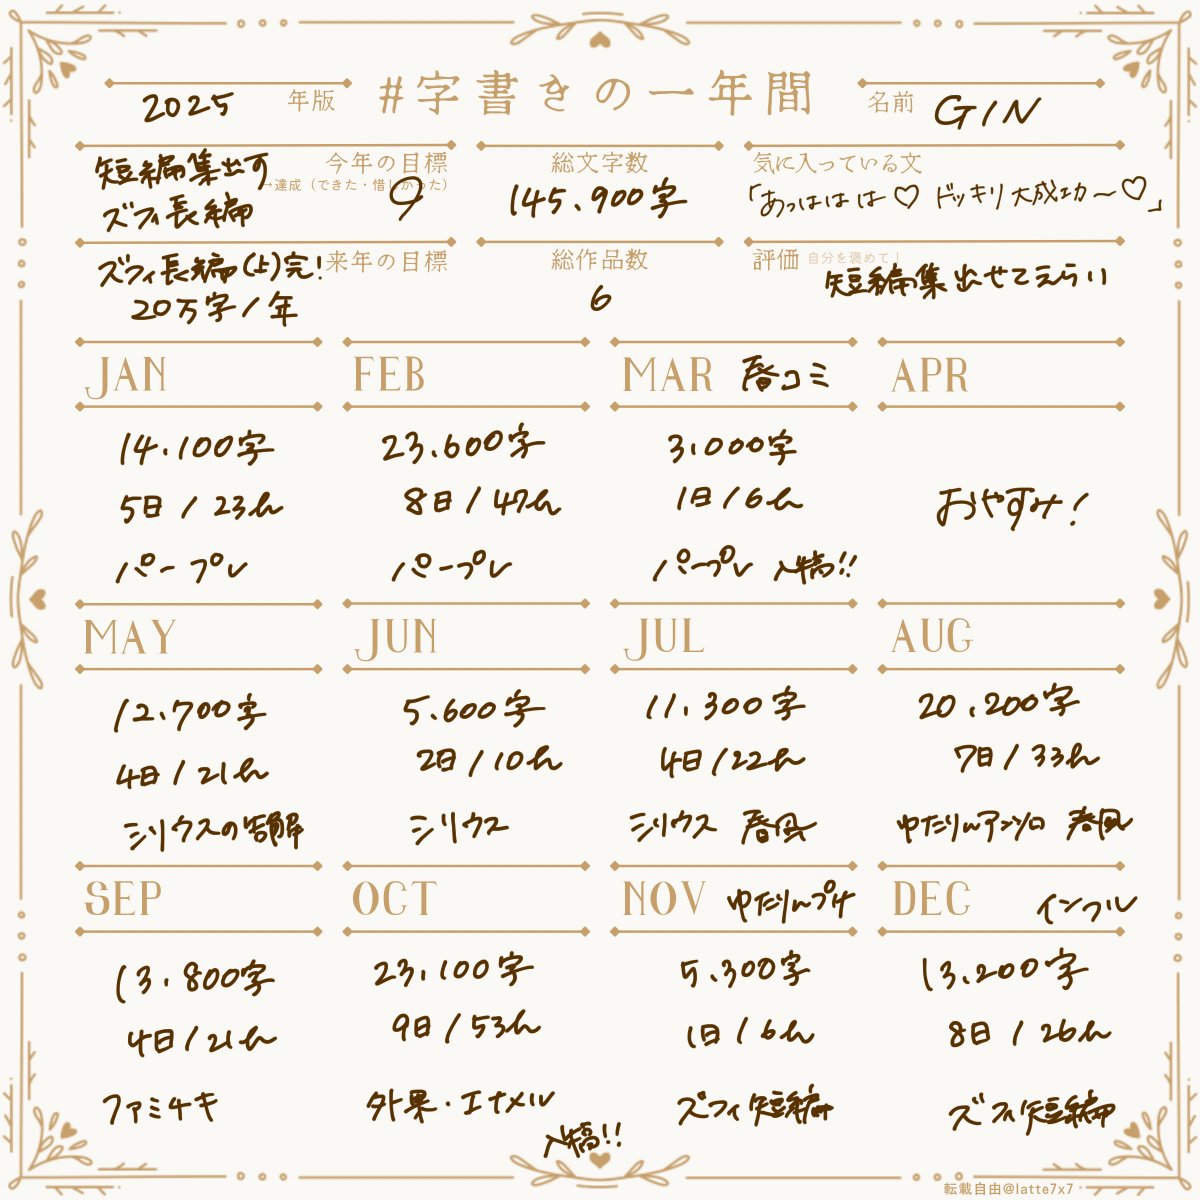 2025 年版
#字書きの一年間
名前 GIN
短編集出す 今年の目標
→達成（できた・惜しかった）
ズフィ長編
総文字数
145.900字
気に入っている文
「あっははは♡ ドッキリ大成功〜♡」
ズフィ長編(上)完! 来年の目標
20万字/年
総作品数
6
評価 自分を褒めて！
短編集出せてえらい
JAN
14.100字
5日/23h
パープル
FEB
23.600字
8日/47h
パープル
MAR 春コミ
3.000字
1日/6h
パープル 入稿!!
APR
おやすみ!
MAY
12.700字
4日/21h
シリウスの告解
JUN
5.600字
2日/10h
シリウス
JUL
11.300字
4日/22h
シリウス 春風
AUG
20.200字
7日/33h
ゆたりんアンソロ 春風
SEP
13.800字
4日/21h
ファミチキ
OCT
23.100字
9日/53h
外果・エナメル
入稿!!
NOV ゆたりんプチ
5.300字
1日/6h
ズフィ短編
DEC インフル
13.200字
8日/26h
ズフィ短編
転載自由@latte7x7